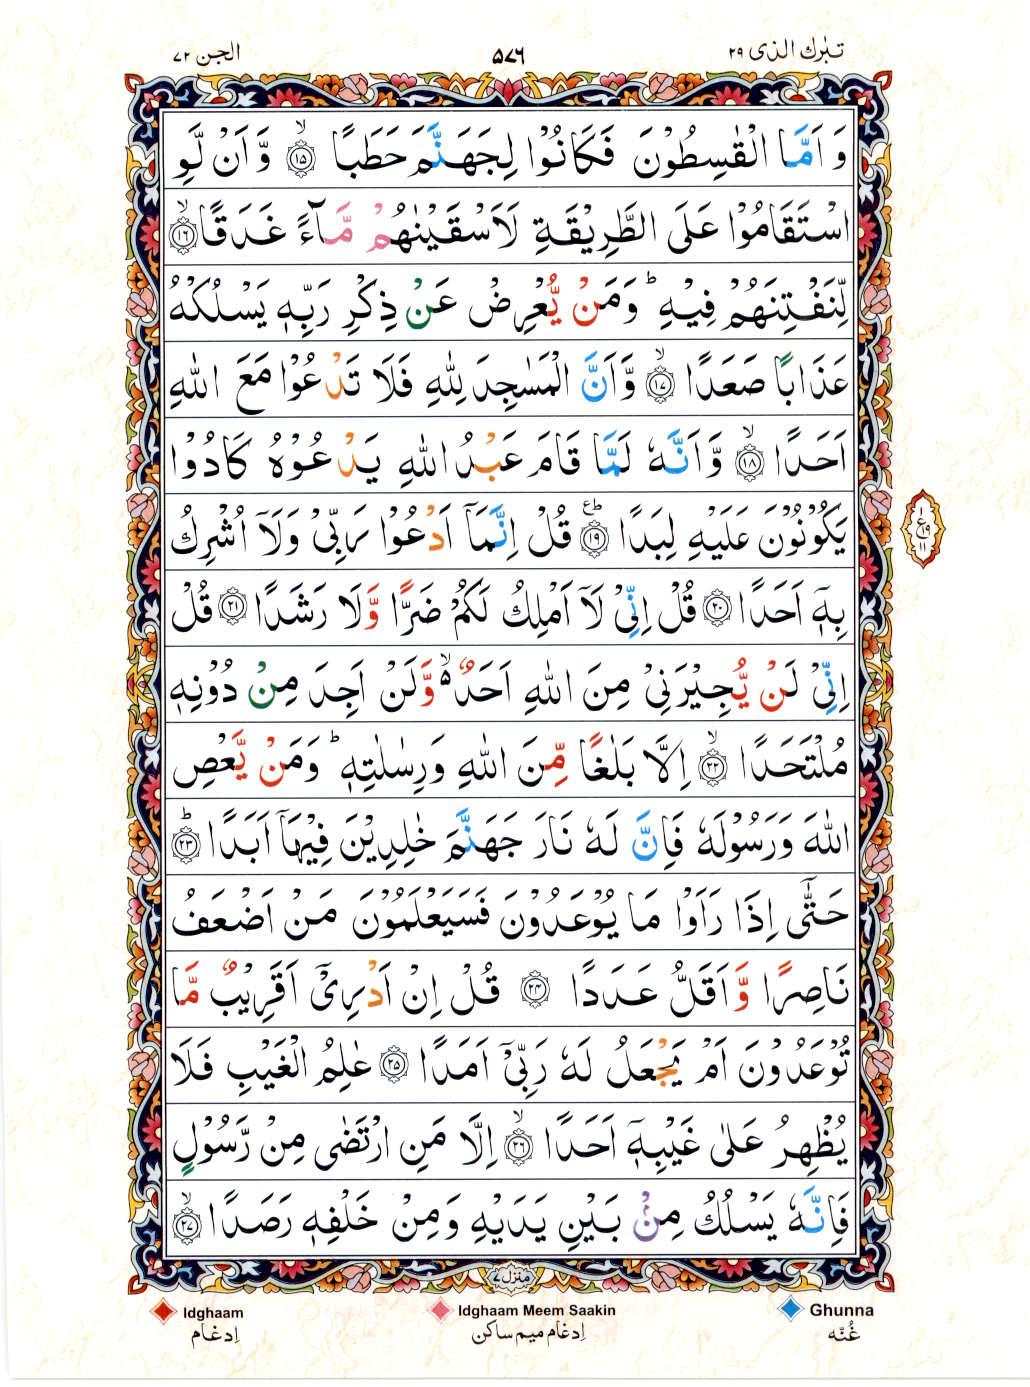 تبٰرك الذى ٢٩
٥٧٦
الجن ٧٢
وَ اَمَّا الْقٰسِطُوْنَ فَكَانُوْا لِجَهَنَّمَ حَطَبًا ۙ﴿١٥﴾ وَّ اَنْ لَّوِ
اسْتَقَامُوْا عَلَى الطَّرِيْقَةِ لَاَسْقَيْنٰهُمْ مَّآءً غَدَقًا ۙ﴿١٦﴾
لِّنَفْتِنَهُمْ فِيْهِ ؕ وَمَنْ يُّعْرِضْ عَنْ ذِكْرِ رَبِّهٖ يَسْلُكْهُ
عَذَابًا صَعَدًا ۙ﴿١٧﴾ وَّاَنَّ الْمَسٰجِدَ لِلّٰهِ فَلَا تَدْعُوْا مَعَ اللّٰهِ
اَحَدًا ۙ﴿١٨﴾ وَّاَنَّهٗ لَمَّا قَامَ عَبْدُ اللّٰهِ يَدْعُوْهُ كَادُوْا
يَكُوْنُوْنَ عَلَيْهِ لِبَدًا ؕع﴿١٩﴾ قُلْ اِنَّمَاۤ اَدْعُوْا رَبِّىْ وَلَاۤ اُشْرِكُ
بِهٖۤ اَحَدًا ﴿٢٠﴾ قُلْ اِنِّىْ لَاۤ اَمْلِكُ لَكُمْ ضَرًّا وَّلَا رَشَدًا ﴿٢١﴾ قُلْ
اِنِّىْ لَنْ يُّجِيْرَنِىْ مِنَ اللّٰهِ اَحَدٌ ۙ۬ وَّلَنْ اَجِدَ مِنْ دُوْنِهٖ
مُلْتَحَدًا ۙ﴿٢٢﴾ اِلَّا بَلٰغًا مِّنَ اللّٰهِ وَرِسٰلٰتِهٖ ؕ وَمَنْ يَّعْصِ
اللّٰهَ وَرَسُوْلَهٗ فَاِنَّ لَهٗ نَارَ جَهَنَّمَ خٰلِدِيْنَ فِيْهَاۤ اَبَدًا ؕ﴿٢٣﴾
حَتّٰٓى اِذَا رَاَوْا مَا يُوْعَدُوْنَ فَسَيَعْلَمُوْنَ مَنْ اَضْعَفُ
نَاصِرًا وَّاَقَلُّ عَدَدًا ﴿٢٤﴾ قُلْ اِنْ اَدْرِىْۤ اَقَرِيْبٌ مَّا
تُوْعَدُوْنَ اَمْ يَجْعَلُ لَهٗ رَبِّىْۤ اَمَدًا ﴿٢٥﴾ عٰلِمُ الْغَيْبِ فَلَا
يُظْهِرُ عَلٰى غَيْبِهٖۤ اَحَدًا ۙ﴿٢٦﴾ اِلَّا مَنِ ارْتَضٰى مِنْ رَّسُوْلٍ
فَاِنَّهٗ يَسْلُكُ مِنْۢ بَيْنِ يَدَيْهِ وَمِنْ خَلْفِهٖ رَصَدًا ۙ﴿٢٧﴾
١
ع ١٩
١١
منزل ٧
Ghunna
غُنّه
Idghaam Meem Saakin
اِدغام میم ساکن
Idghaam
اِدغام